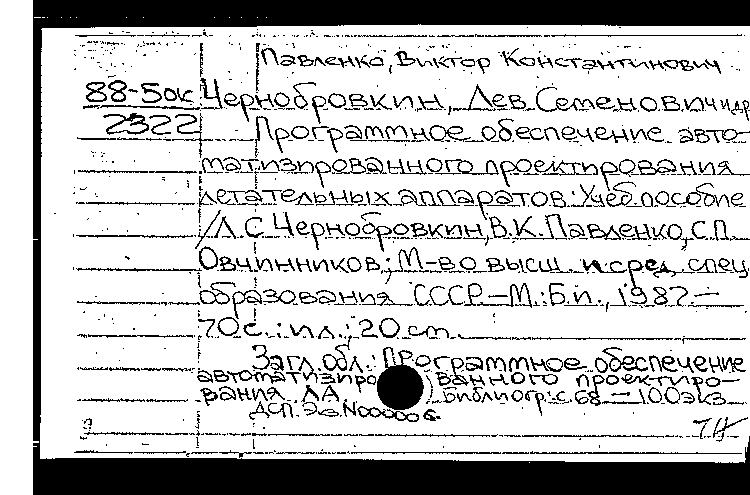 Павленко, Виктор Константинович
88-5ок Чернобровкин, Лев Семенович и др
2322 Программное обеспечение авто-
матизированного проектирования
летательных аппаратов: Учеб. пособие
/Л.С. Чернобровкин, В.К. Павленко, С.П.
Овчинников; М-во высш. и сред. спец.
образования СССР.—М.: Б.и., 1987.—
70с.: ил.; 20 см.
Загл. обл.: Программное обеспечение
автоматизиро ванного проектиро-
вания ЛА. Библиогр.: с. 68 — 100 экз
ДСП. Экз. N000006
9